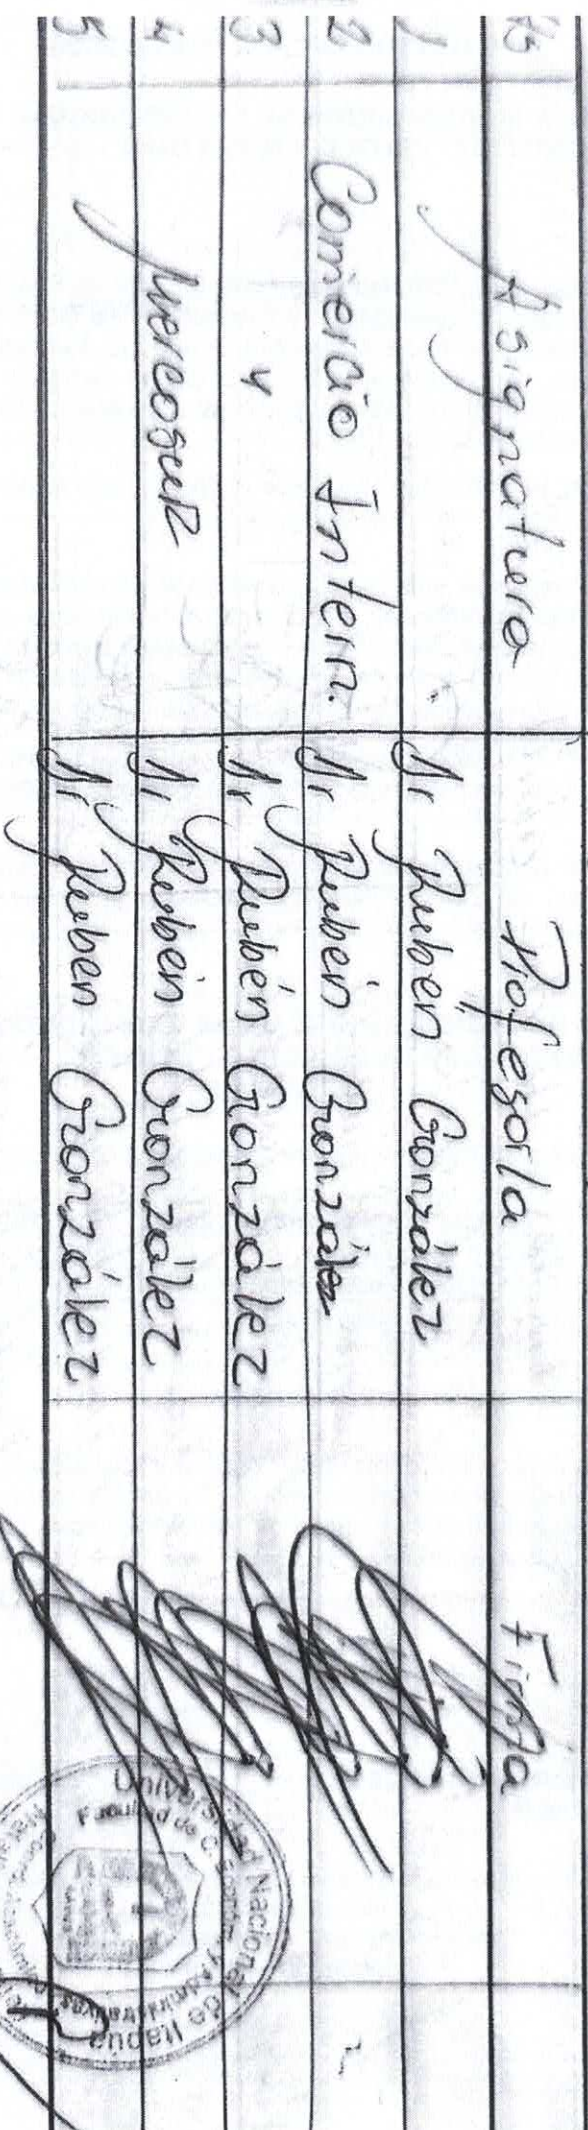 Nº Asignatura Profesor/a Firma
1 Dr Ruben González
2 Comercio Intern. Dr Rubén González
3 y Dr Rubén González
4 Mercosur Dr Rubén González
5 Dr Ruben González
Universidad Nacional de Itapúa
Facultad de C. Económ. y Administrativas